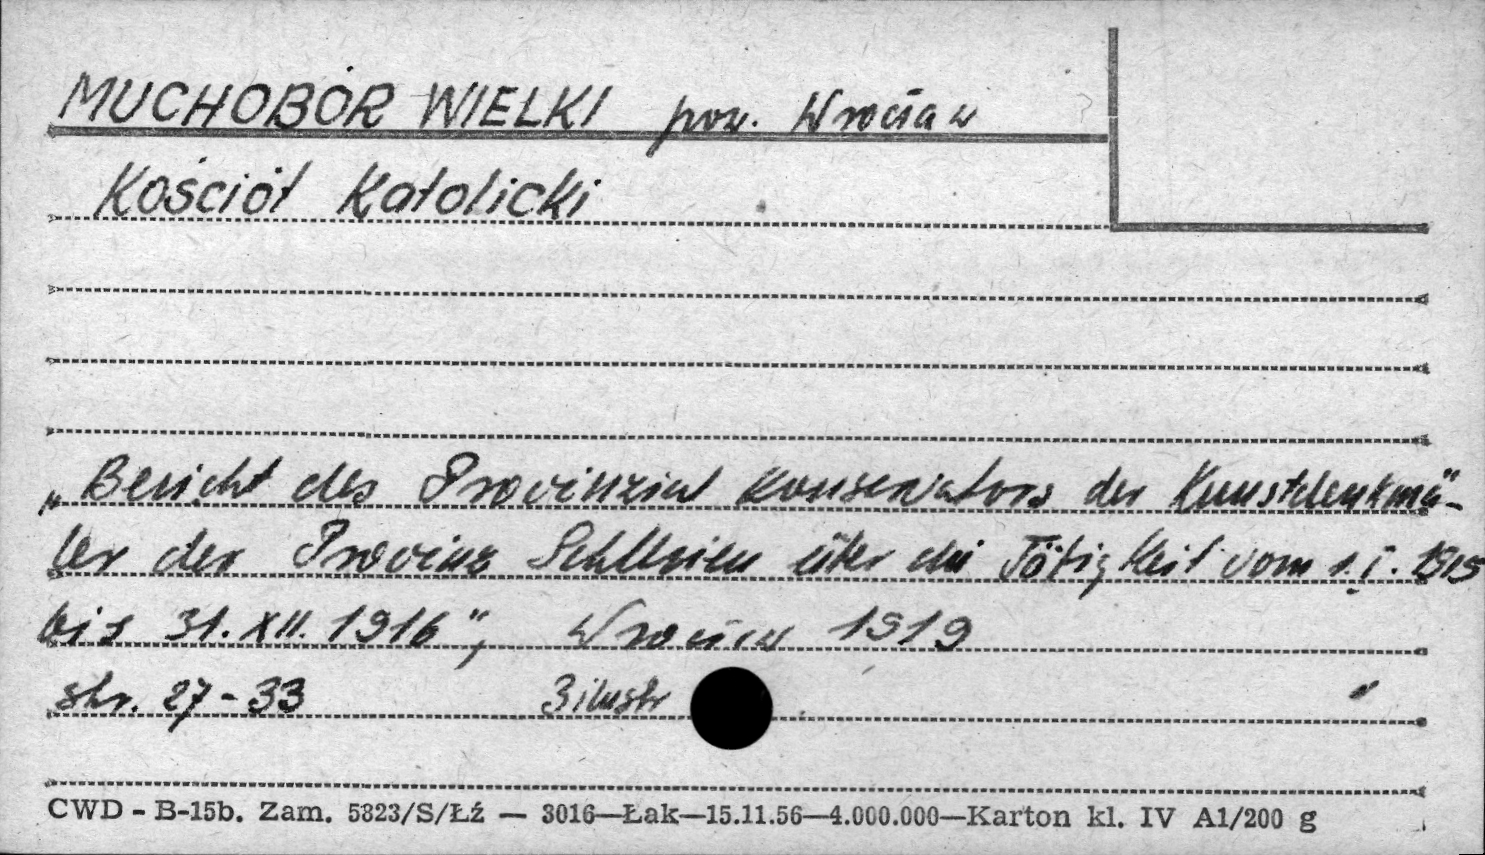 MUCHOBÓR WIELKI pow. Wrocław
Kościół Katolicki
„Bericht des Provinzial Konservators der Kunstdenkmä-
ler der Provinz Schlesien über die Tätigkeit vom 1.I. 1915
bis 31.XII.1916", Wrocław 1919
str. 27-33 3 ilustr
CWD - B-15b. Zam. 5323/S/Łź — 3016—Łak—15.11.56—4.000.000—Karton kl. IV A1/200 g